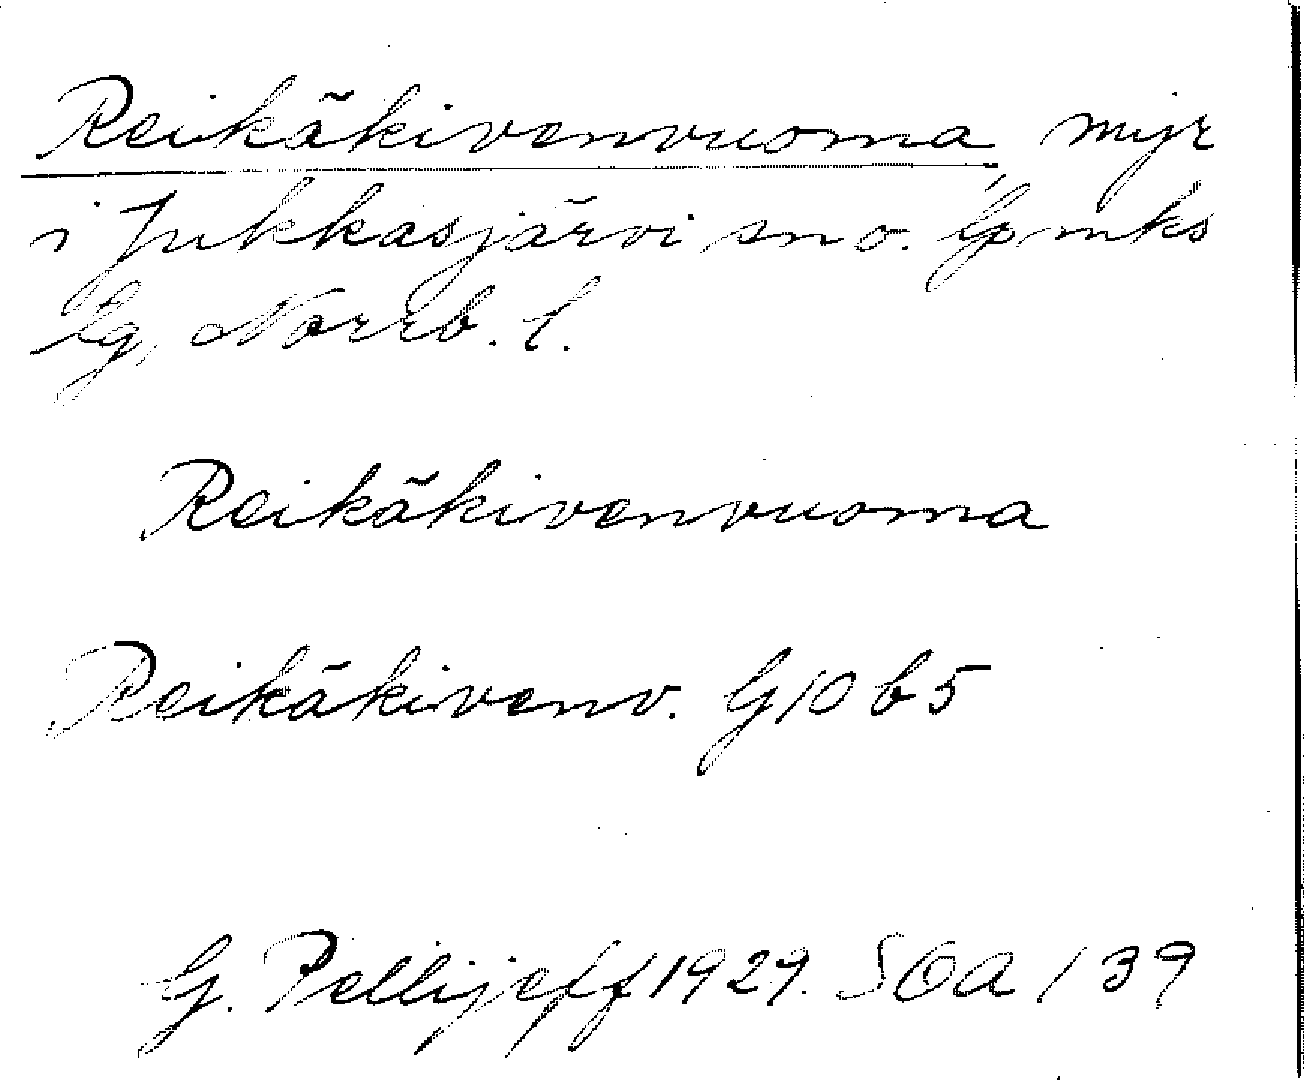 Reikäkivenvuoma, myr
i Jukkasjärvi sn o. lpmks
lg, Norrb. l.
Reikäkivenvuoma
Reikäkivenv. G10b5
G. Pellijeff 1929. SOA 139